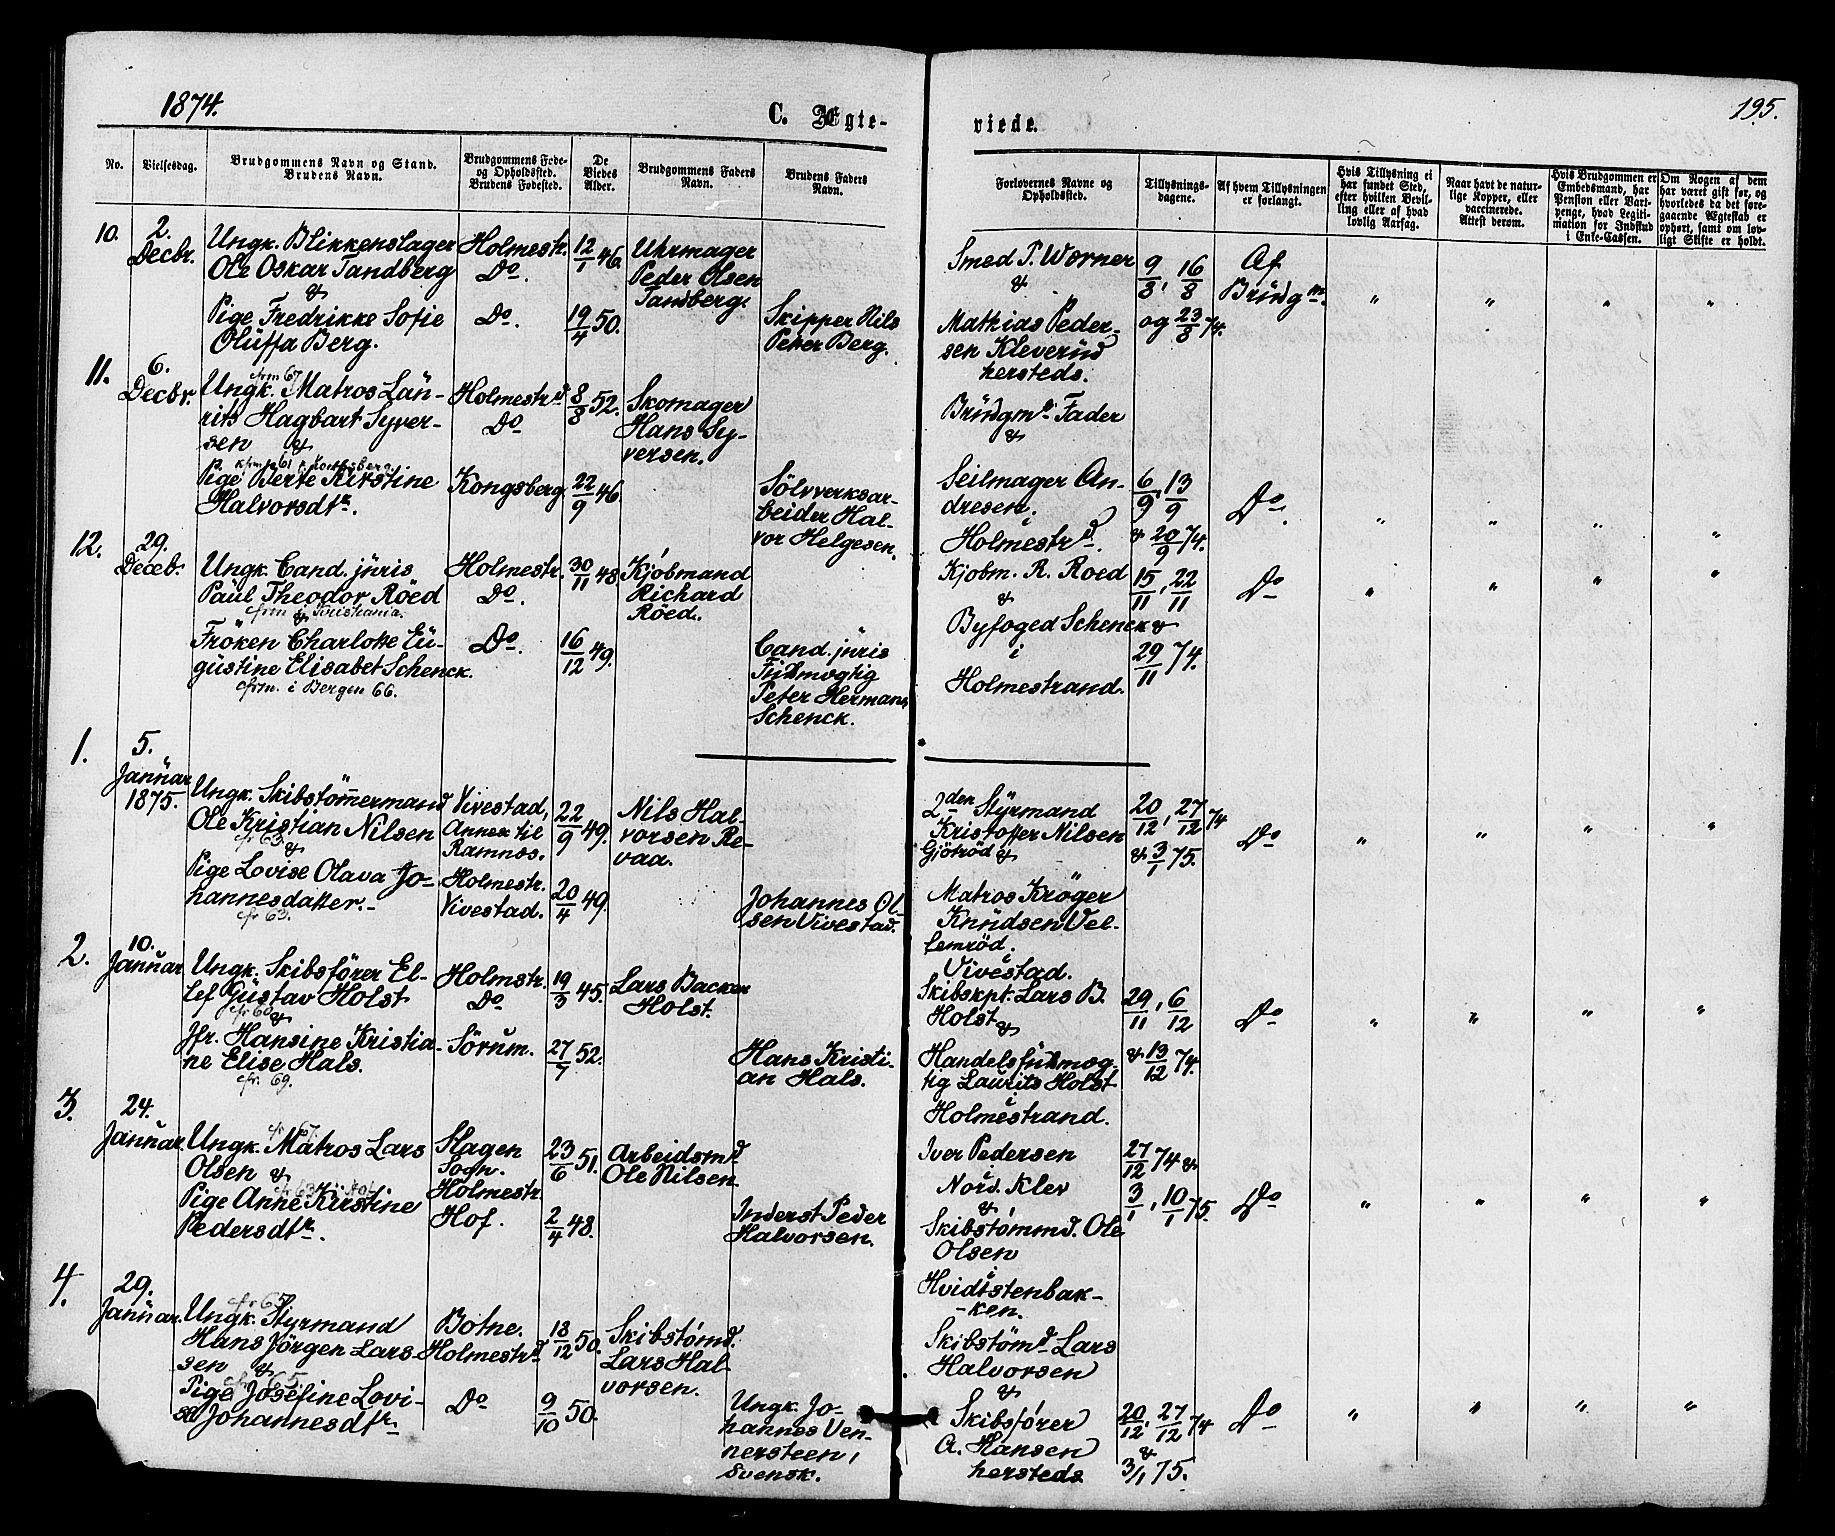 1874.
C. Ægte-
viede.
195.
No.
Vielsesdag.
Brudgommens Navn og Stand.
Brudens Navn.
Brudgommens Føde-
og Opholdssted.
Brudens Fødested.
De
Viedes
Alder.
Brudgommens Faders
Navn.
Brudens Faders
Navn.
Forlovernes Navne og
Opholdssted.
Tillysnings-
dagene.
Af hvem Tillysningen
er forlangt.
Hvis Tillysning ei
har fundet Sted,
efter hvilken Bevil-
ling eller af hvad
lovlig Aarsag.
Naar havt de natur-
lige Kopper, eller
vaccinerede.
Attest derom.
Hvis Brudgommen er
Embedsmand, har
Pension eller Vart-
penge, hvad Legiti-
mation for Indskud
i Enke-Cassen.
Om Nogen af dem
har været gift før, og
hvorledes da det fore-
gaaende Ægteskab er
ophørt, samt om lov-
ligt Skifte er holdt.
10.
2.
Decbr.
Ungk. Blikkenslager
Ole Oskar Tandberg
&
Pige Fredrikke Sofie
Oluffa Berg.
Holmestr.
Do.
Do.
12/1 46.
19/4 50.
Uhrmager
Peder Olsen
Tandberg.
Skipper Nils
Peter Berg.
Smed P. Worner
&
Mathias Peder-
sen Kleverud
hersteds.
9/8, 16/8
og 23/8 74.
Af
Brudgm.
" " " "
11.
6.
Decbr.
cfrm 67
Ungk. Matros Lau-
rits Hagbart Syver-
sen &
cfrm 61 p. Kongsberg.
Pige Berte Kirstine
Halvorsdtr.
Holmestrd
Do
Kongsberg
8/8 52.
22/9 46.
Skomager
Hans Sy-
versen.
Sölvverksar-
beider Hal-
vor Helgesen.
Brudgms Fader
&
Seilmager An-
dresen.
i
Holmestrd.
6/9, 13/9
& 20/9 74.
Do.
" " " "
12.
29.
Deceb.
Ungk. Cand. juris
Paul Theodor Röed
cfrm i Kristiania.
&
Fröken Charlotte Eu-
gustine Elisabet Schenck.
cfrm. i Bergen 66.
Holmestr.
Do.
Do.
30/11 48
16/12 49.
Kjöbmand
Richard
Röed.
Cand. juris
Fuldmægtig
Peter Herman
Schenck.
Kjobm. R. Roed
&
Byfoged Schenck
i
Holmestrand.
15/11, 22/11
&
29/11 74.
Do
" " " "
1.
5.
Januar
1875.
Ungk. Skibstømmermand
Ole Kristian Nilsen
cfr 63. &
Pige Lovise Olava Jo-
hannesdatter.-
cfr 63.
Vivestad,
Annex til
Ramnæs.
Holmestr.
Vivestad.
22/9 49.
20/4 49.
Nils Hal-
vorsen Re-
vaa.
Johannes Ol-
sen Vivestad.
2den Styrmand
Kristoffer Nilsen
Gjötröd &
Matros Kröger
Knudsen Vel-
lemröd.
i
Vivestad.
20/12, 27/12 74
& 3/1 75.
Do
" " " "
2.
10.
Januar
Ungk. Skibsfører El-
lef Gustav Holst
cfr 60 &
Jfr. Hansine Kristia-
ne Elise Hals.
cfr. 69.
Holmstr.
Do
Sörum.
19/3 45.
27/7 52.
Lars Backer
Holst.
Hans Kristi-
an Hals.
Skibskpt. Lars B.
Holst &
Handelsfuldmæg-
tig Laurits Holst
i
Holmestrand.
29/11, 6/12
& 13/12 74.
Do
" " " "
3.
24.
Januar
cfr 67.
Ungk. Matros Lars
Olsen &
Pige Anne Kirstine
Pedersdtr.
Slagen
Sogn.
Holmestr.
Hof.
23/6 51.
2/4 48.
Arbeidsmd
Ole Nilsen
Inderst Peder
Halvorsen.
Iver Pedersen
i
Nord. Klev
&
Skibstømmd. Ole
Olsen
i
Hvidstenbak-
-ken.
27/12 74 &
3/1, 10/1 75.
Do
" " " "
4.
29.
Januar.
cfr 65.
Ungk. Styrmand
Hans Jörgen Lars-
sen &
cfr 65.
Pige Josefine Lovi-
se Johannesdtr.
Botne.
Holmestrd
Do
18/12 50.
9/10 50.
Skibstømd.
Lars Hal-
vorsen.
Ungk. Jo-
hannes Ven-
nersteen,
Svensk.
Skibstømd Lars
Halvorsen
&
Skibsfører
A. Hansen
hersteds
20/12, 27/12 74
&
3/1 75.
Do
" " " "